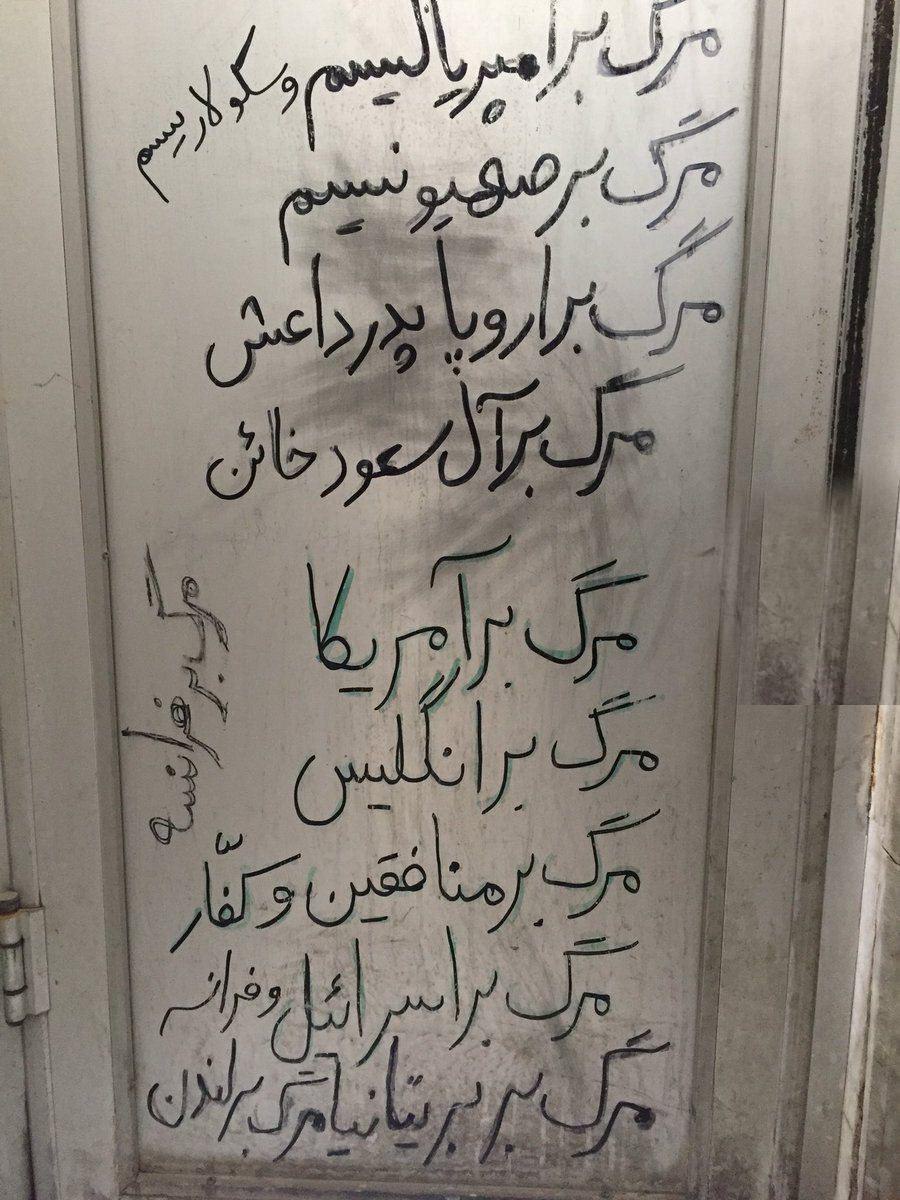 مرگ بر امپریالیسم و سکولاریسم
مرگ بر صهیونیسم
مرگ بر اروپا پدر داعش
مرگ بر آل سعود خائن
مرگ بر آمریکا
مرگ بر انگلیس
مرگ بر منافقین و کفّار
مرگ بر اسرائیل و فرانسه
مرگ بر بریتانیا مرگ بر لندن
مرگ بر فرانسه